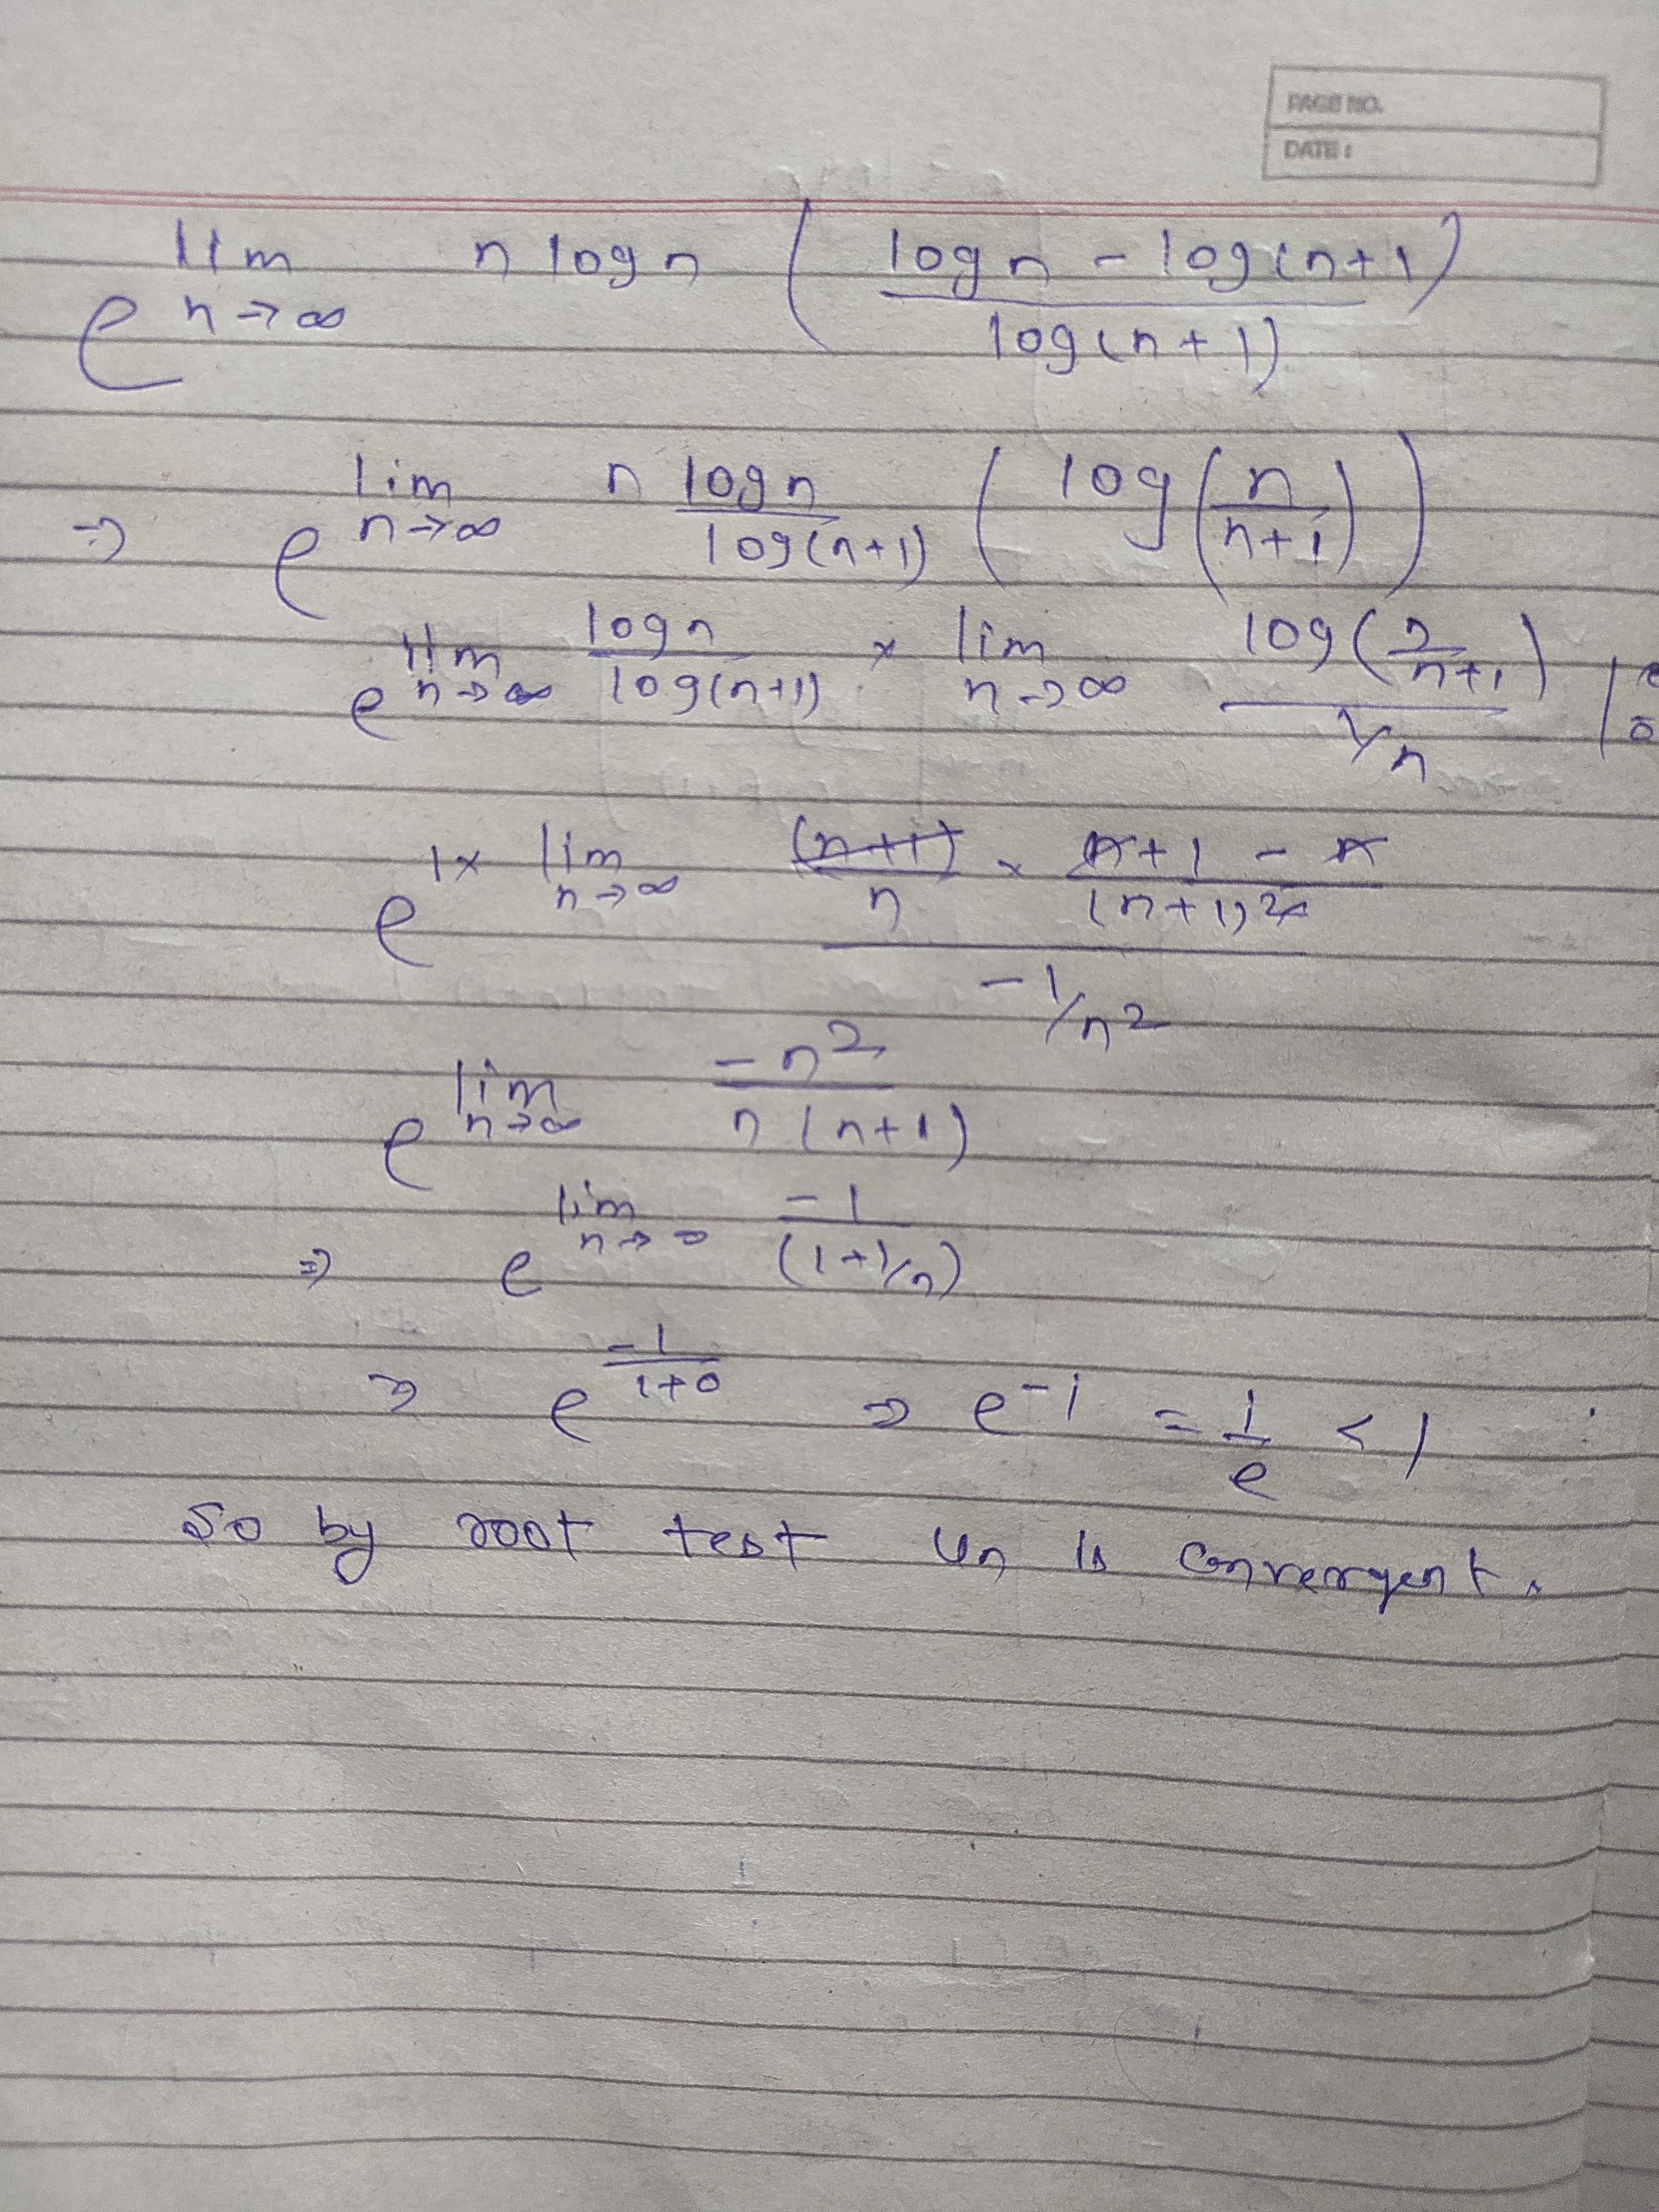 PAGE NO.
DATE :
e^{lim_{n→∞} n log n ( \frac{log n - log(n+1)}{log(n+1)} )}
⇒ e^{lim_{n→∞} n \frac{log n}{log(n+1)} ( log ( \frac{n}{n+1} ) )}
e^{lim_{n→∞} \frac{log n}{log(n+1)} × lim_{n→∞} \frac{log ( \frac{n}{n+1} )}{1/n}}
e^{1× lim_{n→∞} \frac{\frac{(n+1)}{n} × \frac{n+1 - n}{(n+1)^2}}{-1/n^2}}
e^{lim_{n→∞} \frac{-n^2}{n(n+1)}}
⇒ e^{lim_{n→∞} \frac{-1}{(1+1/n)}}
⇒ e^{\frac{-1}{1+0}} ⇒ e^{-1} = \frac{1}{e} < 1
So by root test un is convergent.